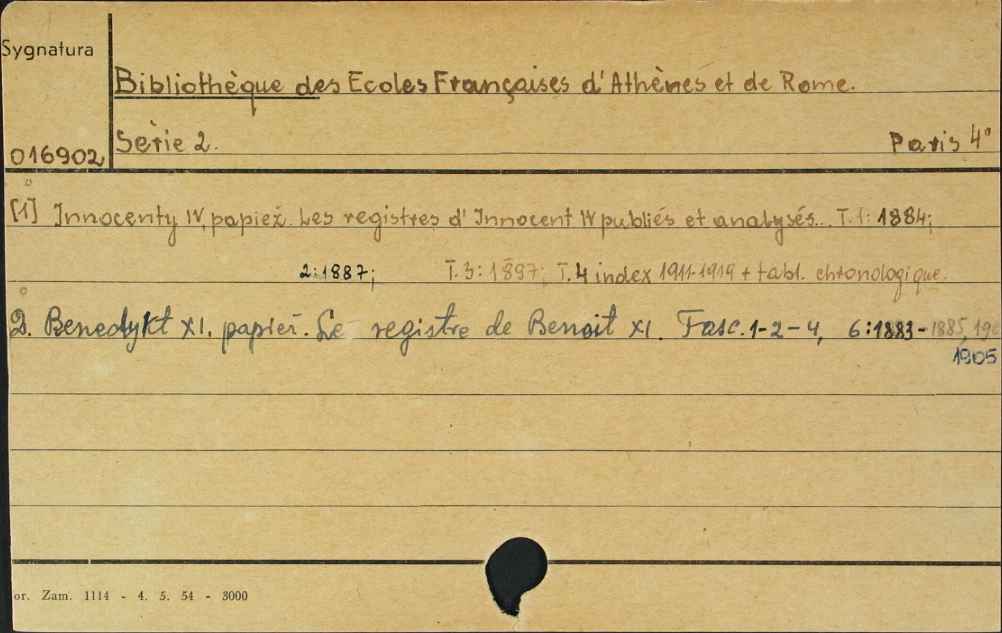 Sygnatura
Bibliothèque des Ecoles Françaises d'Athènes et de Rome.
016902
Série 2. Paris 4°
[1] Innocenty IV, papież. Les registres d'Innocent IV publiés et analysés... T. 1: 1884;
2: 1887; T. 3: 1897; T. 4 index 1911-1919 + tabl. chronologique.
2. Benedykt XI, papież. Le registre de Benoit XI. Fasc. 1-2-4, 6: 1883-1885,
1905
or. Zam. 1114 - 4. 5. 54 - 3000